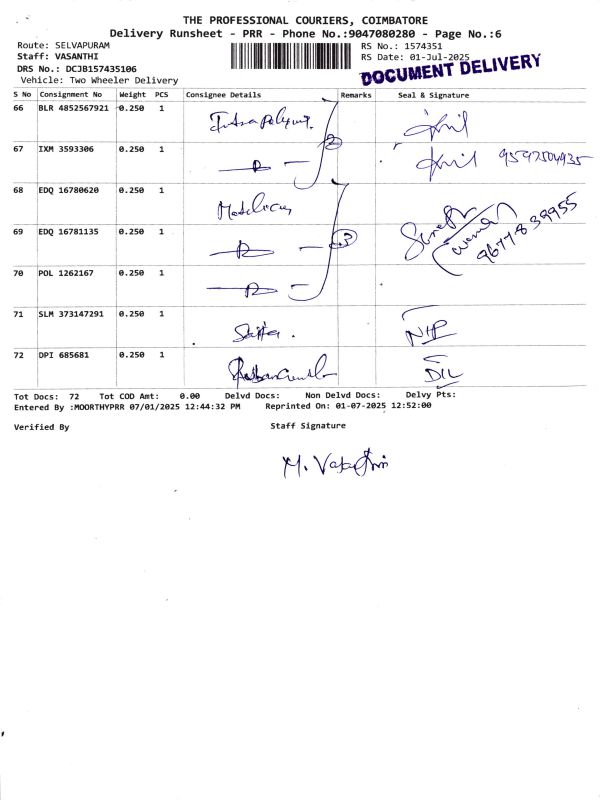 THE PROFESSIONAL COURIERS, COIMBATORE
Delivery Runsheet - PRR - Phone No.:9047080280 - Page No.:6
Route: SELVAPURAM
RS No.: 1574351
Staff: VASANTHI
RS Date: 01-Jul-2025
DRS No.: DCJB157435106
DOCUMENT DELIVERY
Vehicle: Two Wheeler Delivery
S No Consignment No Weight PCS Consignee Details Remarks Seal & Signature
66 BLR 4852567921 0.250 1
67 IXM 3593306 0.250 1 2 9597504935
68 EDQ 16780620 0.250 1
69 EDQ 16781135 0.250 1 3 9677839955
70 POL 1262167 0.250 1
71 SLM 373147291 0.250 1
72 DPI 685681 0.250 1
Tot Docs: 72 Tot COD Amt: 0.00 Delvd Docs: Non Delvd Docs: Delvy Pts:
Entered By :MOORTHYPRR 07/01/2025 12:44:32 PM Reprinted On: 01-07-2025 12:52:00
Verified By Staff Signature